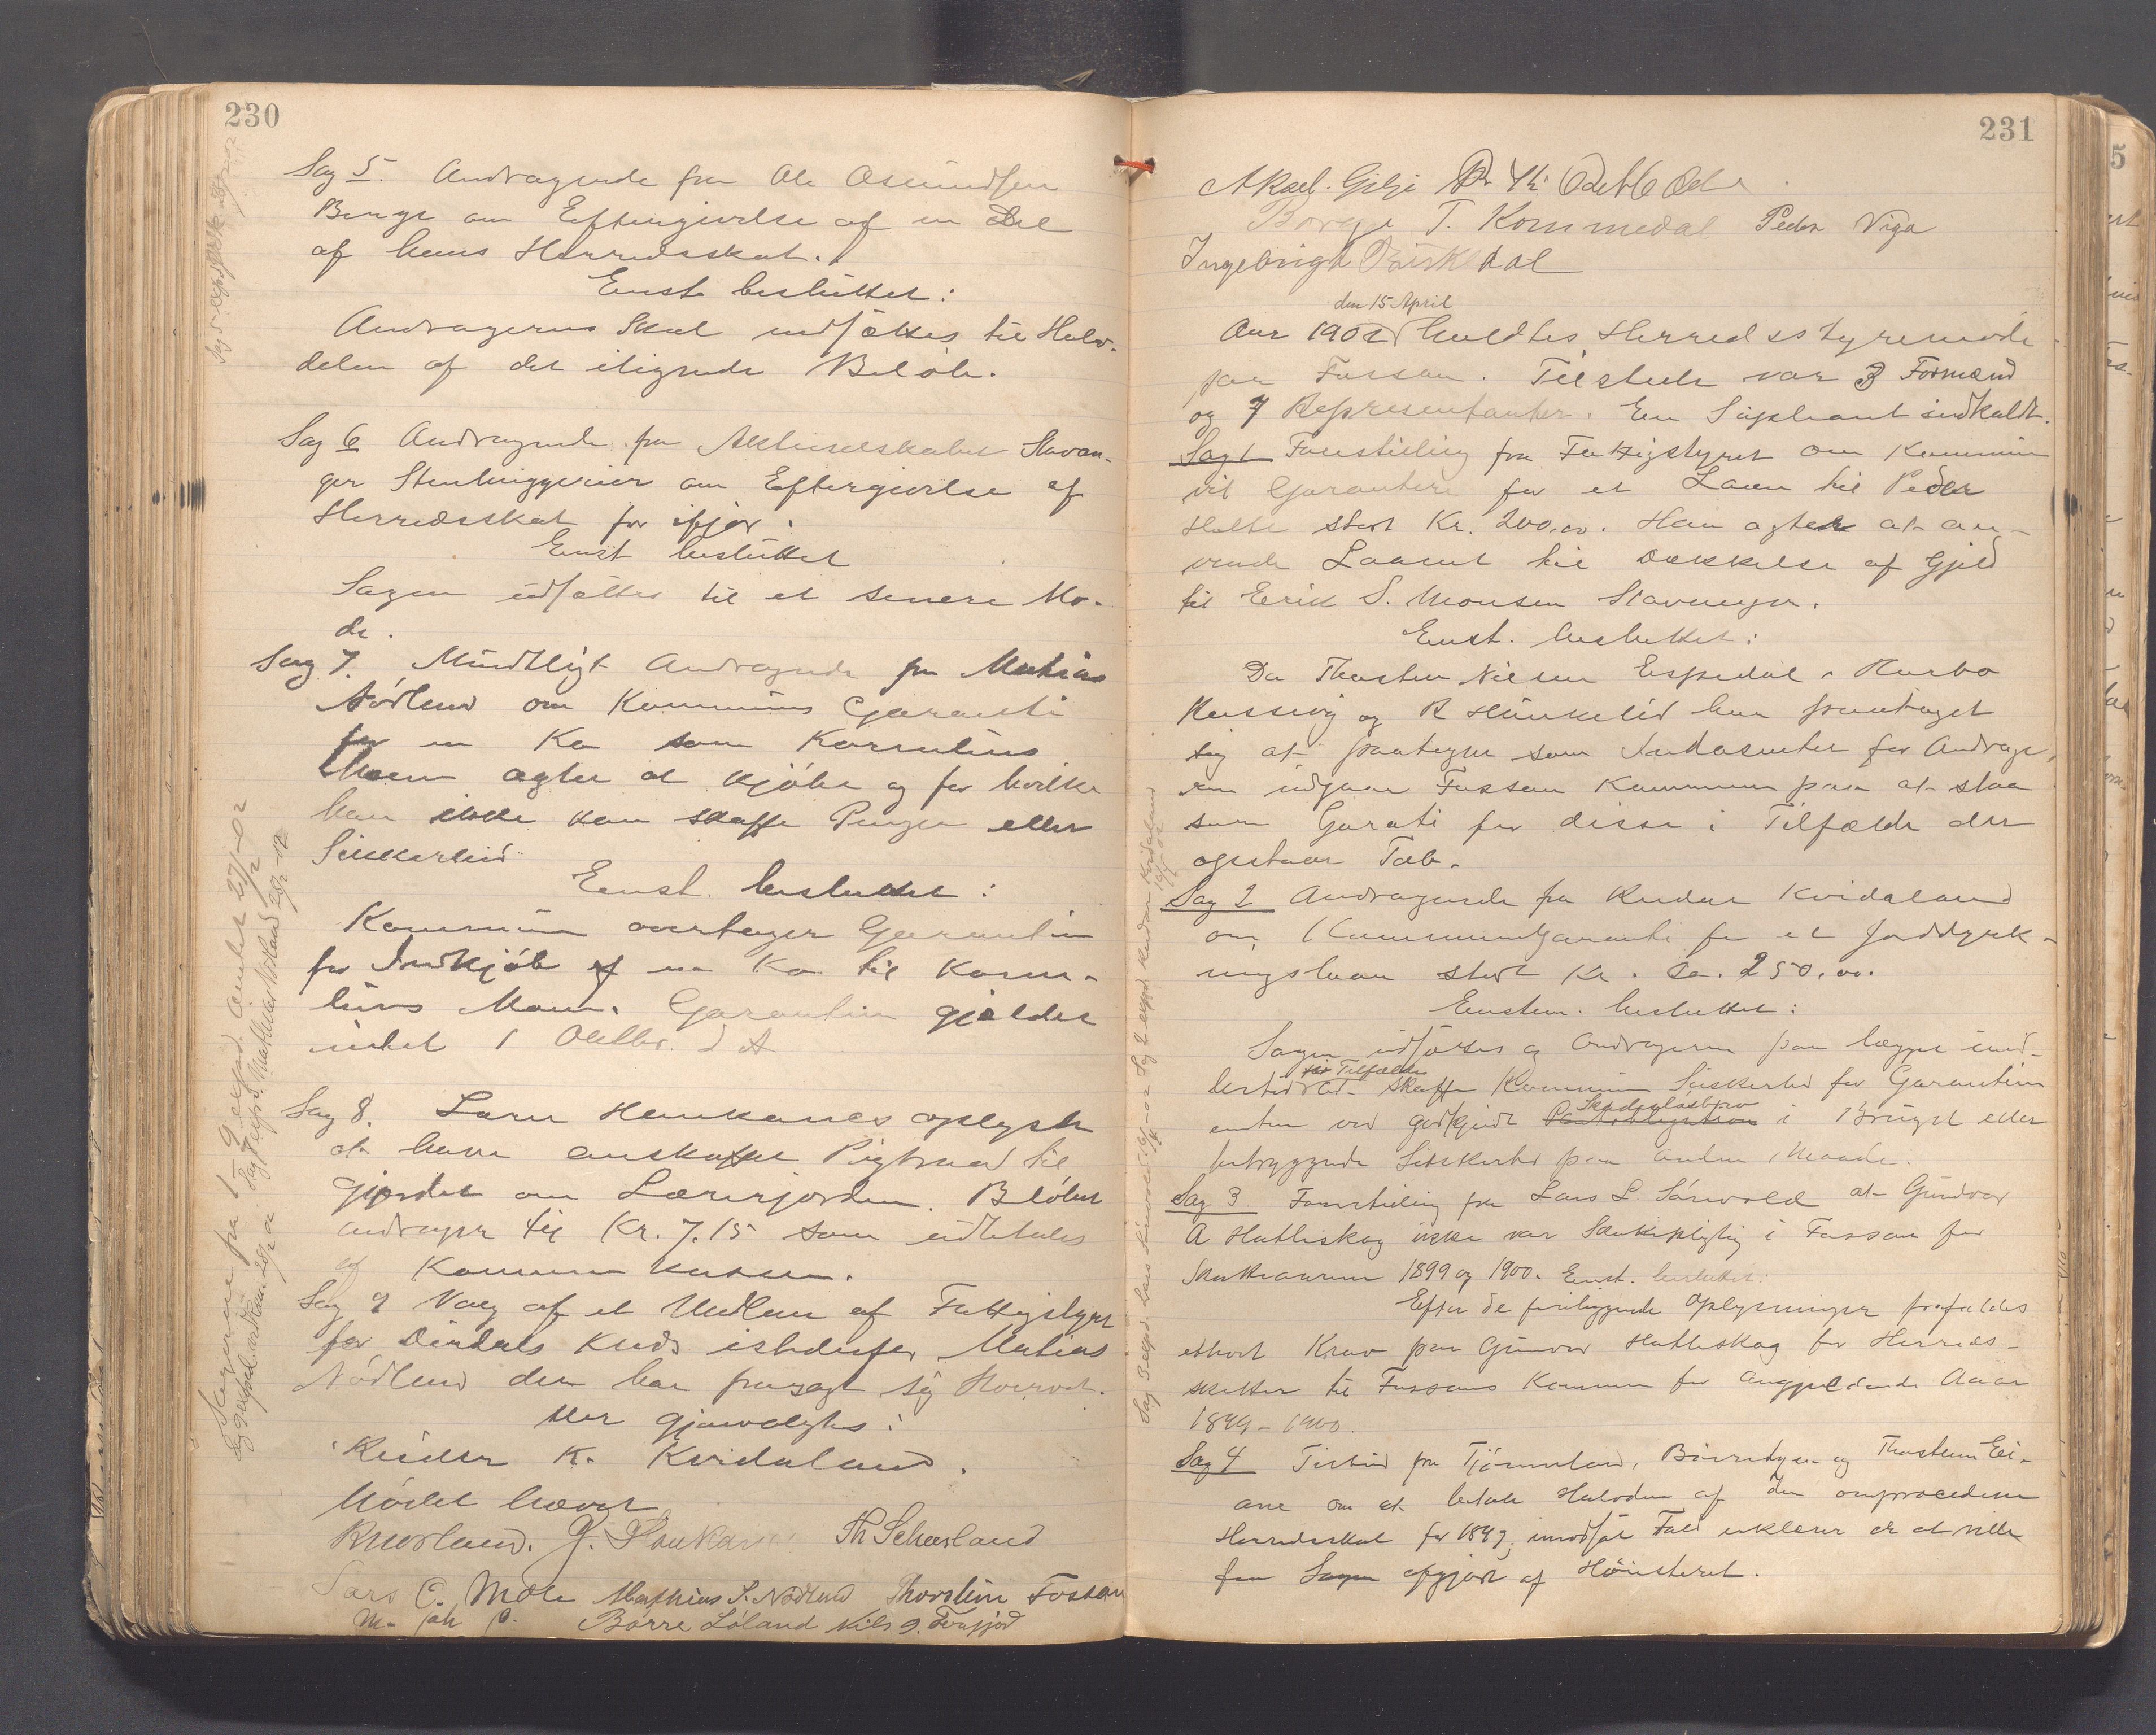 230
Sag 5. Andragende fra Ole Asmundsen
Berge om Eftergivelse af en Del
af hans Herredsskat.
Enst. besluttet:
Andragerens Skat nedsættes til Halv-
delen af det ilignede Beløb.
Sag 6 Andragende fra Aktieselskabet Stavan-
ger Stenhuggerier om Eftergivelse af
Herredsskat for ifjor.
Enst besluttet
Sagen udsættes til et senere Mø-
de.
Sag 7. Mundtligt Andragende fra Mathias
Nødland om Kommunens Garanti
for en Ko som Kornelius
Moen agter at kjøbe og for hvilke
han ikke kan skaffe Penger eller
Sikkerhed
Enst. besluttet:
Kommunen overtager Garantien
for Indkjøb af en Ko til Korne-
lius Moen. Garantien gjælder
indtil 1 Oktbr. d A
Sag 8. Lærer Haukanes oplyste
at have anskaffet Pigtraad til
Gjerdet om Lærerjorden. Beløbet
andrager til Kr. 7.15 som udbetales
af Kommunekassen.
Sag 9 Valg af et Medlem af Fattigstyret
for Dirdals Kreds istedenfor Mathias
Nødland der har frasagt sig Hvervet.
Her gjenvalgtes:
Reidar K. Kvidaland.
Mødet hævet
R Morland. J. Haukanes Th Scheesland
Lars O. Mæle Mathias S. Nødland Thorstein Fossan
Børre Løland Nils J. Frafjord
231
Aksel Gilje
Børge T. Kommedal Peder Viga
Ingebrigt Birkedal
den 15 April
Aar 1902 holdtes Herredsstyremøde
paa Fossan. Tilstede var 3 Formænd
og 7 Repræsentanter. En Supleant indkaldt.
Sag 1 Forestilling fra Fattigstyret om Kommunen
vil Garantere for et Laan til Peder
Holte stort Kr. 200,00. Han agter at an-
vende Laanet til Dækkelse af Gjeld
til Erik S. Monsen Stavanger.
Enst. besluttet:
Da Thorsten Nilsen Espedal,
og R Haukelid har paataget
sig at paategne som Indosenter for Andrage-
ren indgaar Fossan Kommune paa at staa
som Garati for disse i Tilfælde der
opstaar Tab.
Sag 2 Andragende fra Reidar Kvidaland
om Kommunegaranti for et Jorddyrk-
ningslaan stort Kr. Ca. 250,00.
Enstem. besluttet:
Sagen udsættes og Andrageren paalægges imid-
lertid i Tilfælde at skaffe Kommunen Sikkerhed for Garantien
enten ved godkjendt Skadesløsbrev i Bruget eller
betryggende Sikkerhed paa anden Maade.
Sag 3 Forestilling fra Lars L. Sørvold at Gundvor
A Hatleskog ikke var Skattepligtig i Fossan for
Skatteaarene 1899 og 1900. Enst. besluttet:
Efter de foreliggende Oplysninger frafaldes
ethvert Krav paa Gunvor Hatleskog for Herreds-
skatter til Fossans Kommune for angjældende Aaar
1899-1900.
Sag 4 Tilbud fra Tjørnelund, og Thorstein Ei-
ane om at betale Halvdelen af den omprocederte
Herredsskat for 1897; imodsat Fald erklærer de at ville
faa Sagen afgjort af Høiesteret.